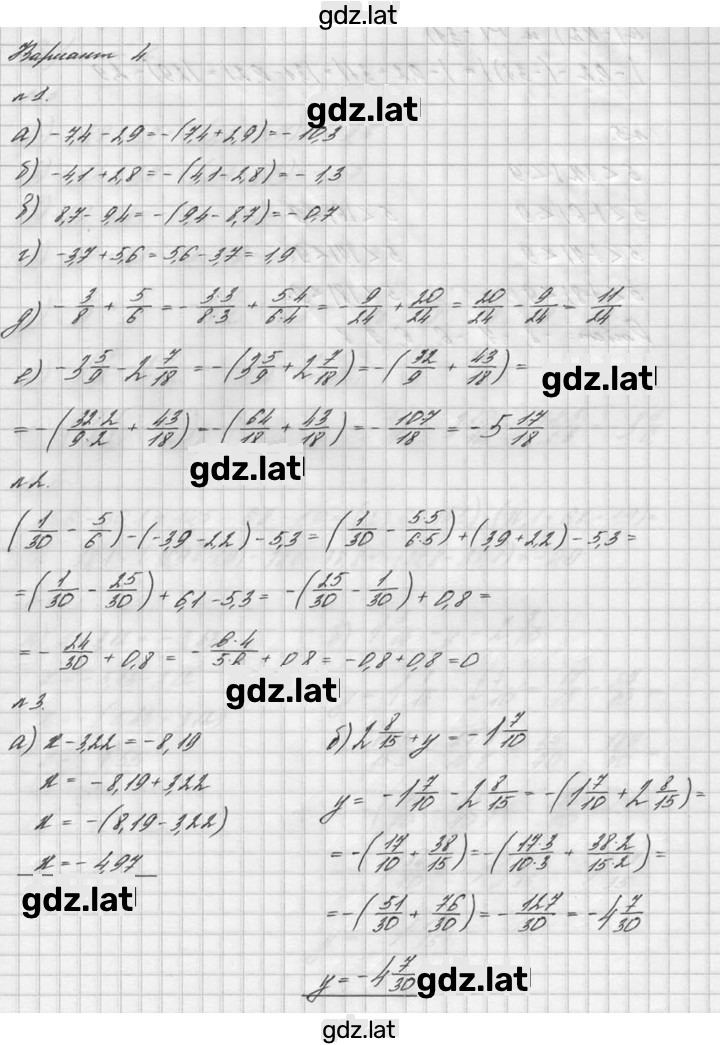 gdz.lat
Вариант 4.
gdz.lat
№1.
а) -7,4 - 2,9 = -(7,4 + 2,9) = -10,3
б) -4,1 + 2,8 = -(4,1 - 2,8) = -1,3
в) 8,7 - 9,4 = -(9,4 - 8,7) = -0,7
г) -3,7 + 5,6 = 5,6 - 3,7 = 1,9
д) -3/8 + 5/6 = -3·3/8·3 + 5·4/6·4 = -9/24 + 20/24 = 20/24 - 9/24 = 11/24
е) -3 5/9 - 2 7/18 = -(3 5/9 + 2 7/18) = -(32/9 + 43/18) =
gdz.lat
= -(32·2/9·2 + 43/18) = -(64/18 + 43/18) = -107/18 = -5 17/18
gdz.lat
№2.
(1/30 - 5/6) - (-3,9 - 2,2) - 5,3 = (1/30 - 5·5/6·5) + (3,9 + 2,2) - 5,3 =
= (1/30 - 25/30) + 6,1 - 5,3 = -(25/30 - 1/30) + 0,8 =
= -24/30 + 0,8 = -6·4/5·6 + 0,8 = -0,8 + 0,8 = 0
gdz.lat
№3.
а) x - 3,22 = -8,19
x = -8,19 + 3,22
x = -(8,19 - 3,22)
x = -4,97
gdz.lat
б) 2 8/15 + y = -1 7/10
y = -1 7/10 - 2 8/15 = -(1 7/10 + 2 8/15) =
= -(17/10 + 38/15) = -(17·3/10·3 + 38·2/15·2) =
= -(51/30 + 76/30) = -127/30 = -4 7/30
y = -4 7/30
gdz.lat
gdz.lat